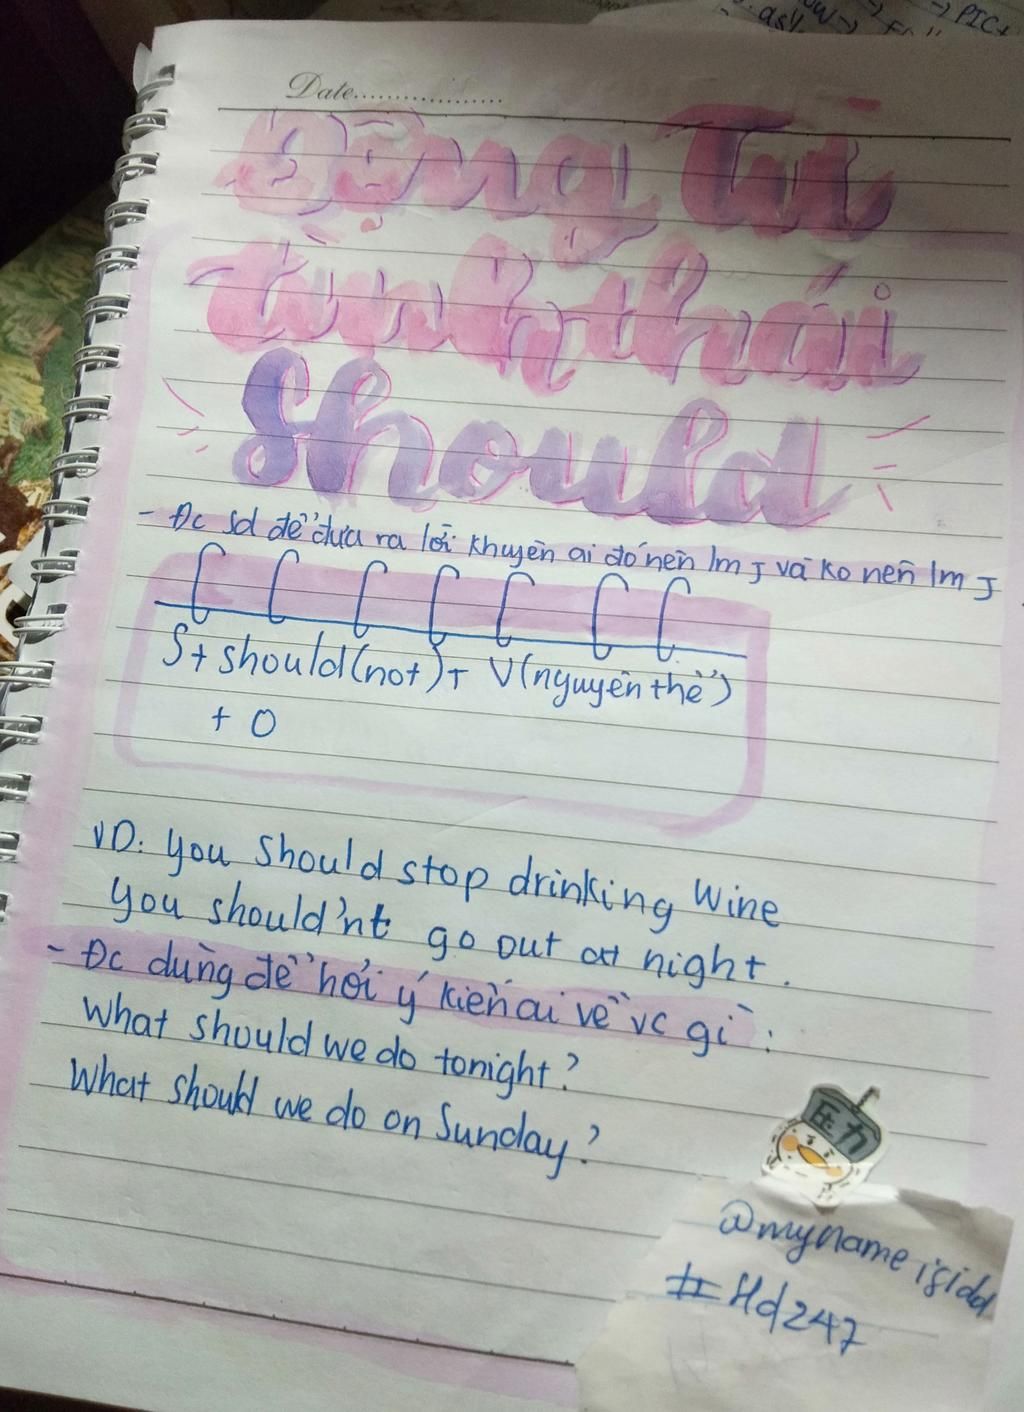 PICt
asy
Date
Động Từ
tình thái
Should
- Đc sd để đưa ra lời khuyên ai đó nên lm J và ko nên lm J
S + should(not) + V(nguyên thể)
+ O
VD: You should stop drinking wine
You should'nt go out at night.
- Đc dùng để hỏi ý kiến ai về vc gì :
What should we do tonight?
What should we do on Sunday?
压力
@mynameisidd
#Hd247